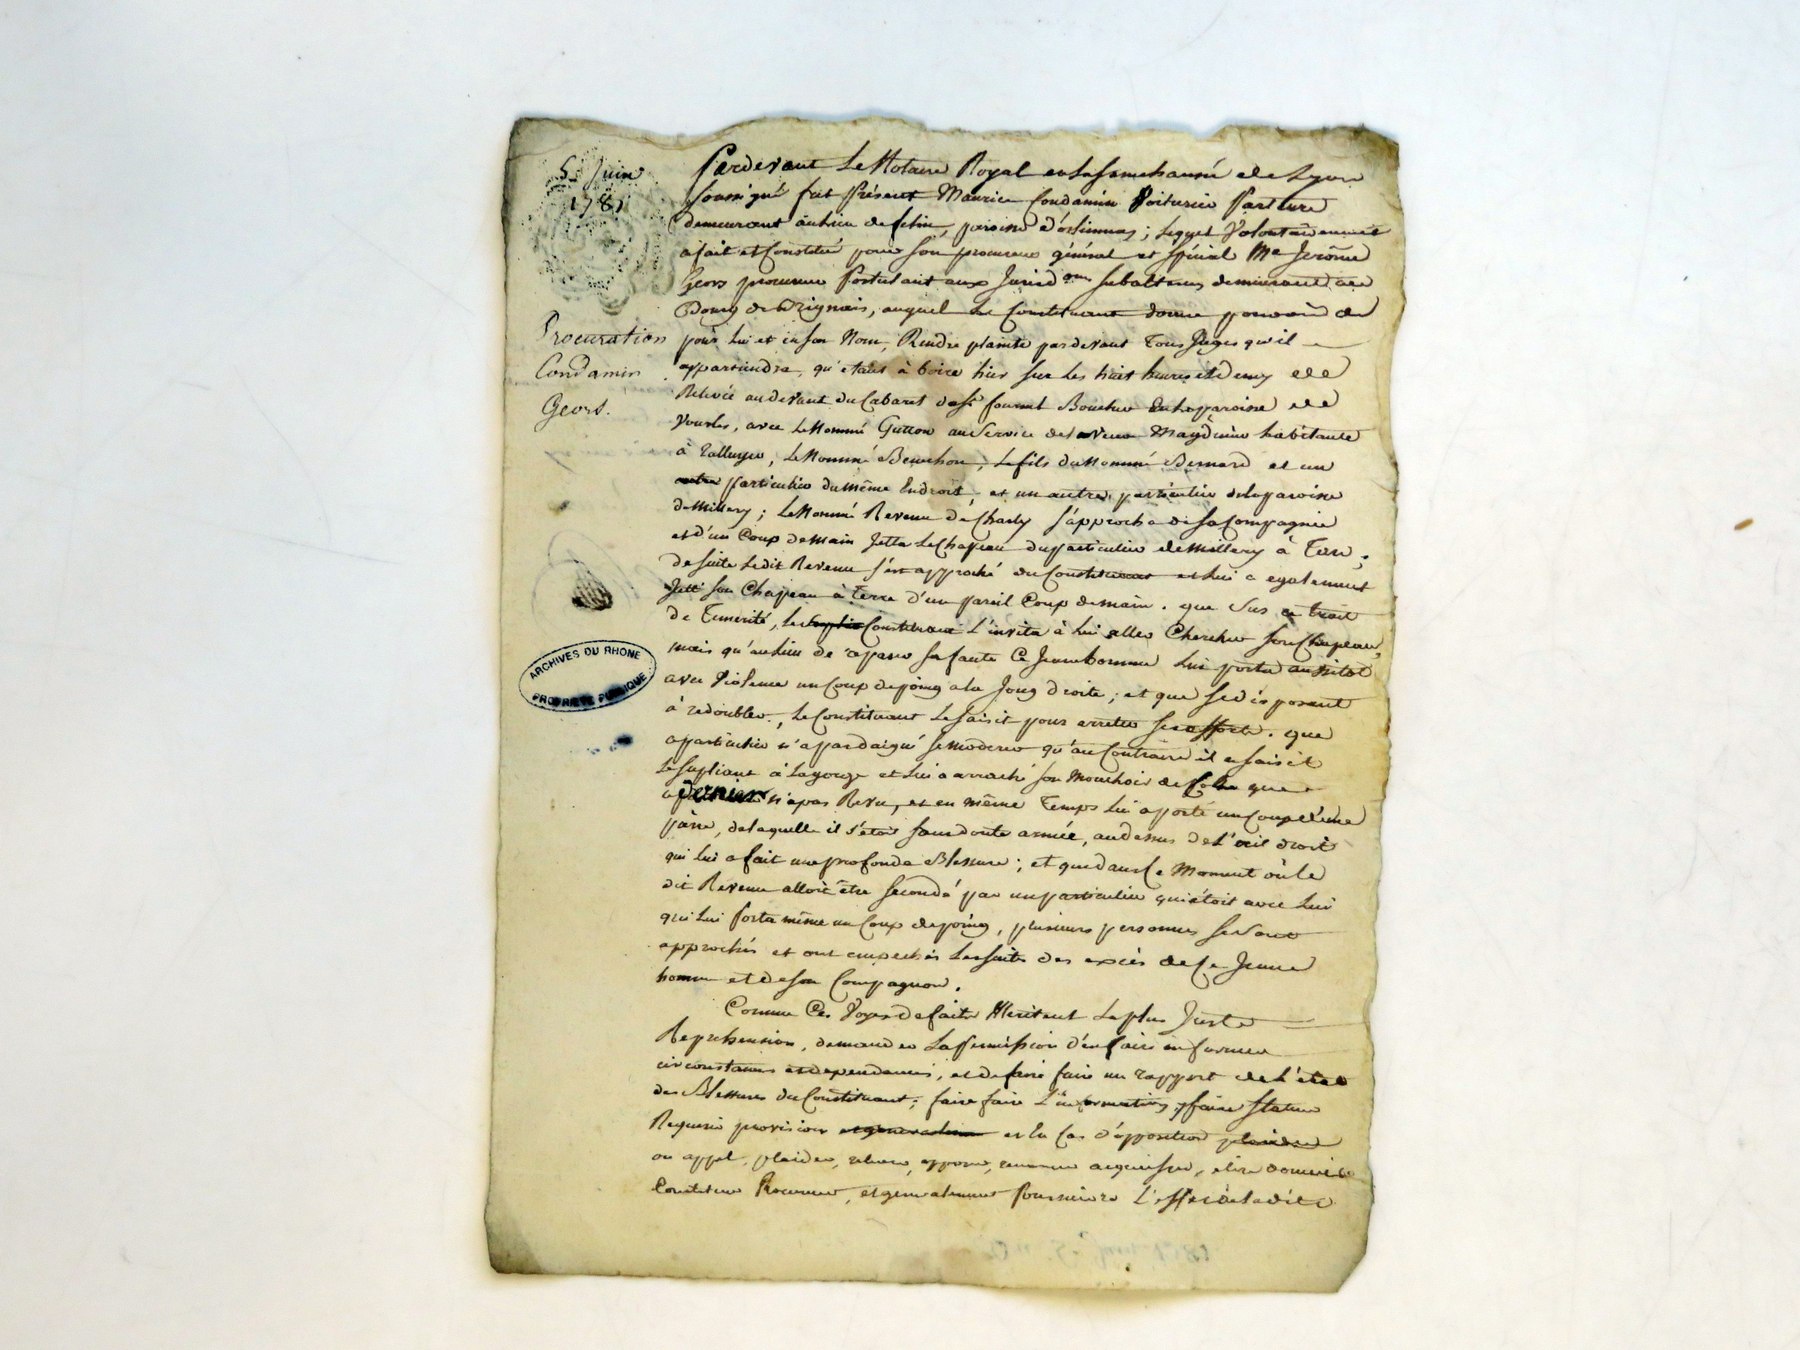 5 Juin
1781
Procuration
Condamin
Geors.
ARCHIVES DU RHONE
PROPRIÉTÉ PUBLIQUE
Pardevant Le Notaire Royal en la Senechaussé de Lyon
soussigné fut Présent Maurice Condamin Voiturier Par terre
demeurant au lieu de , paroisse d'orliennas ; Lequel Volontairement
a fait et Constitué pour son procureur général et spécial Me Jerôme
Geors procureur Postulant aux Jurisd.ons subalternes demeurant au
Bourg de Brignais, auquel Le Constituant donne pouvoir de
pour Lui et en son Nom, Rendre plainte pardevant Tous Juges qu'il
appartiendra, qu'etant à boire hier sur Les huit heures et demy de
Relevée au devant du Cabaret de Sr fournel Boucher En La paroisse de
Vourles, avec Le Nommé Gutton au Service de La veuve habitante
à Talluyer, Le Nommé Benechon, Le fils du Nommé Bernard et un
autre particulier du même Endroit, et un autre particulier de la paroisse
de Millery ; Le Nommé Revenu de Charly s'approcha de Sa Compagnie
et d'un Coup de main Jetta Le Chapeau du particulier de Millery à Terre ;
de suite Ledit Revenu s'est approché du Constituant et Lui a egalement
Jetté son Chapeau à Terre d'un pareil Coup de main. que Sur ce trait
de Temerité, Le Constituant L'invita à Lui aller Chercher son Chapeau,
mais qu'au Lieu de reparer sa faute Ce Jeune homme Lui porta aussitot
avec Violence un Coup de poing a la Joug droite ; et que se disposant
à redoubler, Le Constituant Le saisit pour arreter ses efforts. que
particulier n'a pas daigné se moderer qu'au Contraire il a saisit
Le supliant à La gorge et Lui a arraché son Mouchoir de Col que
dernier n'a pas Revu, et en même Temps Lui a porté un Coup d'une
pierre, de laquelle il s'étoit sans doute armée, au dessus de L'œil droit
qui Lui a fait une profonde Blessure ; et que dans Ce Moment où le
dit Revenu alloit être secondé par un particulier qui étoit avec Lui
qui Lui porta même un Coup de poing, plusieurs personnes se sont
approchés et ont empechés Les suites des excès de Ce Jeune
homme et de son Compagnon.
Comme Ces Voyes de faits Meritent La plus Juste
Reprehension, demander La permission d'en faire informer
circonstances et dependances, et de faire faire un rapport de L'état
des Blessures du Constituant ; faire faire L'information, faire statuer
Requerir provision en Cas d'opposition
ou appel, plaider, , opposer, renoncer acquiescer, elire domicile
Constituer Procureur, et generalement Poursuivre L'effet de ladite